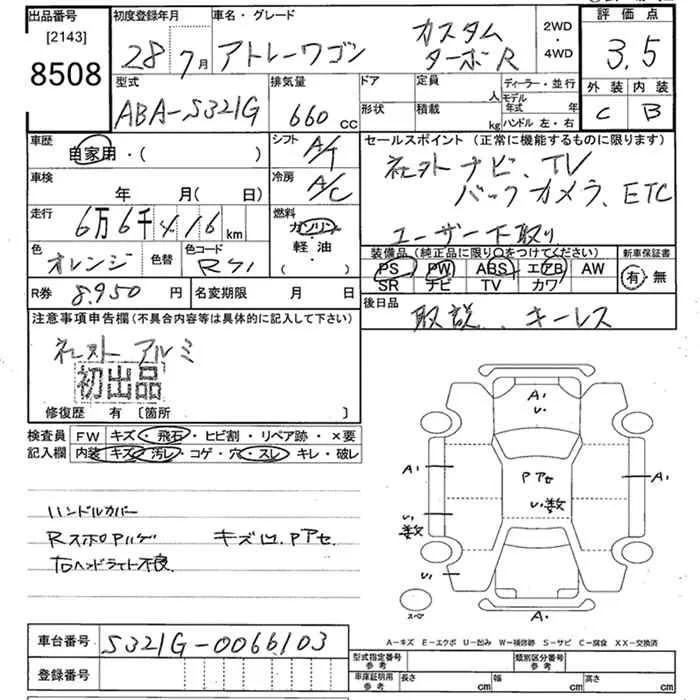 出品番号 初度登録年月 車名・グレード 2WD・4WD 評価点
[2143]
8508
28年7月 アトレーワゴン カスタム ターボR 3.5
型式 排気量 ドア 定員 人 ディーラー・並行 外装 内装
ABA-S321G 660cc 形状 積載 kg モデル年式 年 ハンドル 左・右 C B
車歴 自家用・( ) シフト A/T セールスポイント(正常に機能するものに限ります)
社外ナビ、TV
車検 年 月(日) 冷房 A/C バックカメラ、ETC
走行 6万6千416km 燃料 ガソリン・軽油・( ) ユーザー下取り
色 オレンジ 色替 色コード 装備品(純正品に限り○をつけてください) 新車保証書
PS PW ABS エアB AW 有・無
SR ナビ TV カワ
R券 8.950円 名変期限 月 日 後日品 取説、キーレス
注意事項申告欄(不具合内容等は具体的に記入して下さい)
社外アルミ
初出品
修復歴 有[箇所 ]
検査員 FW キズ・飛石・ヒビ割・リペア跡・×要
記入欄 内装 キズ・汚レ・コゲ・穴・スレ・キレ・破レ
ハンドルカバー
キズ凹、Pアセ
右ヘッドライト不良
A
U
A
Pアセ
A
U数
U
数
U
スペ
A
A-キズ E-エクボ U-凹み W-補修跡 S-サビ C-腐食 XX-交換済
車台番号 S321G-0066103
型式指定番号 参考 類別区分番号 参考
登録番号 車庫証明用 参考 長さ cm 幅 cm 高さ cm